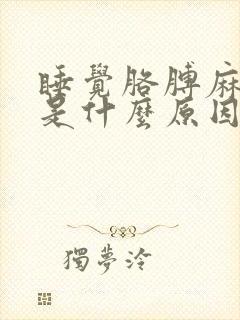 睡覺胳膊麻
是什麼原因
獨夢泠